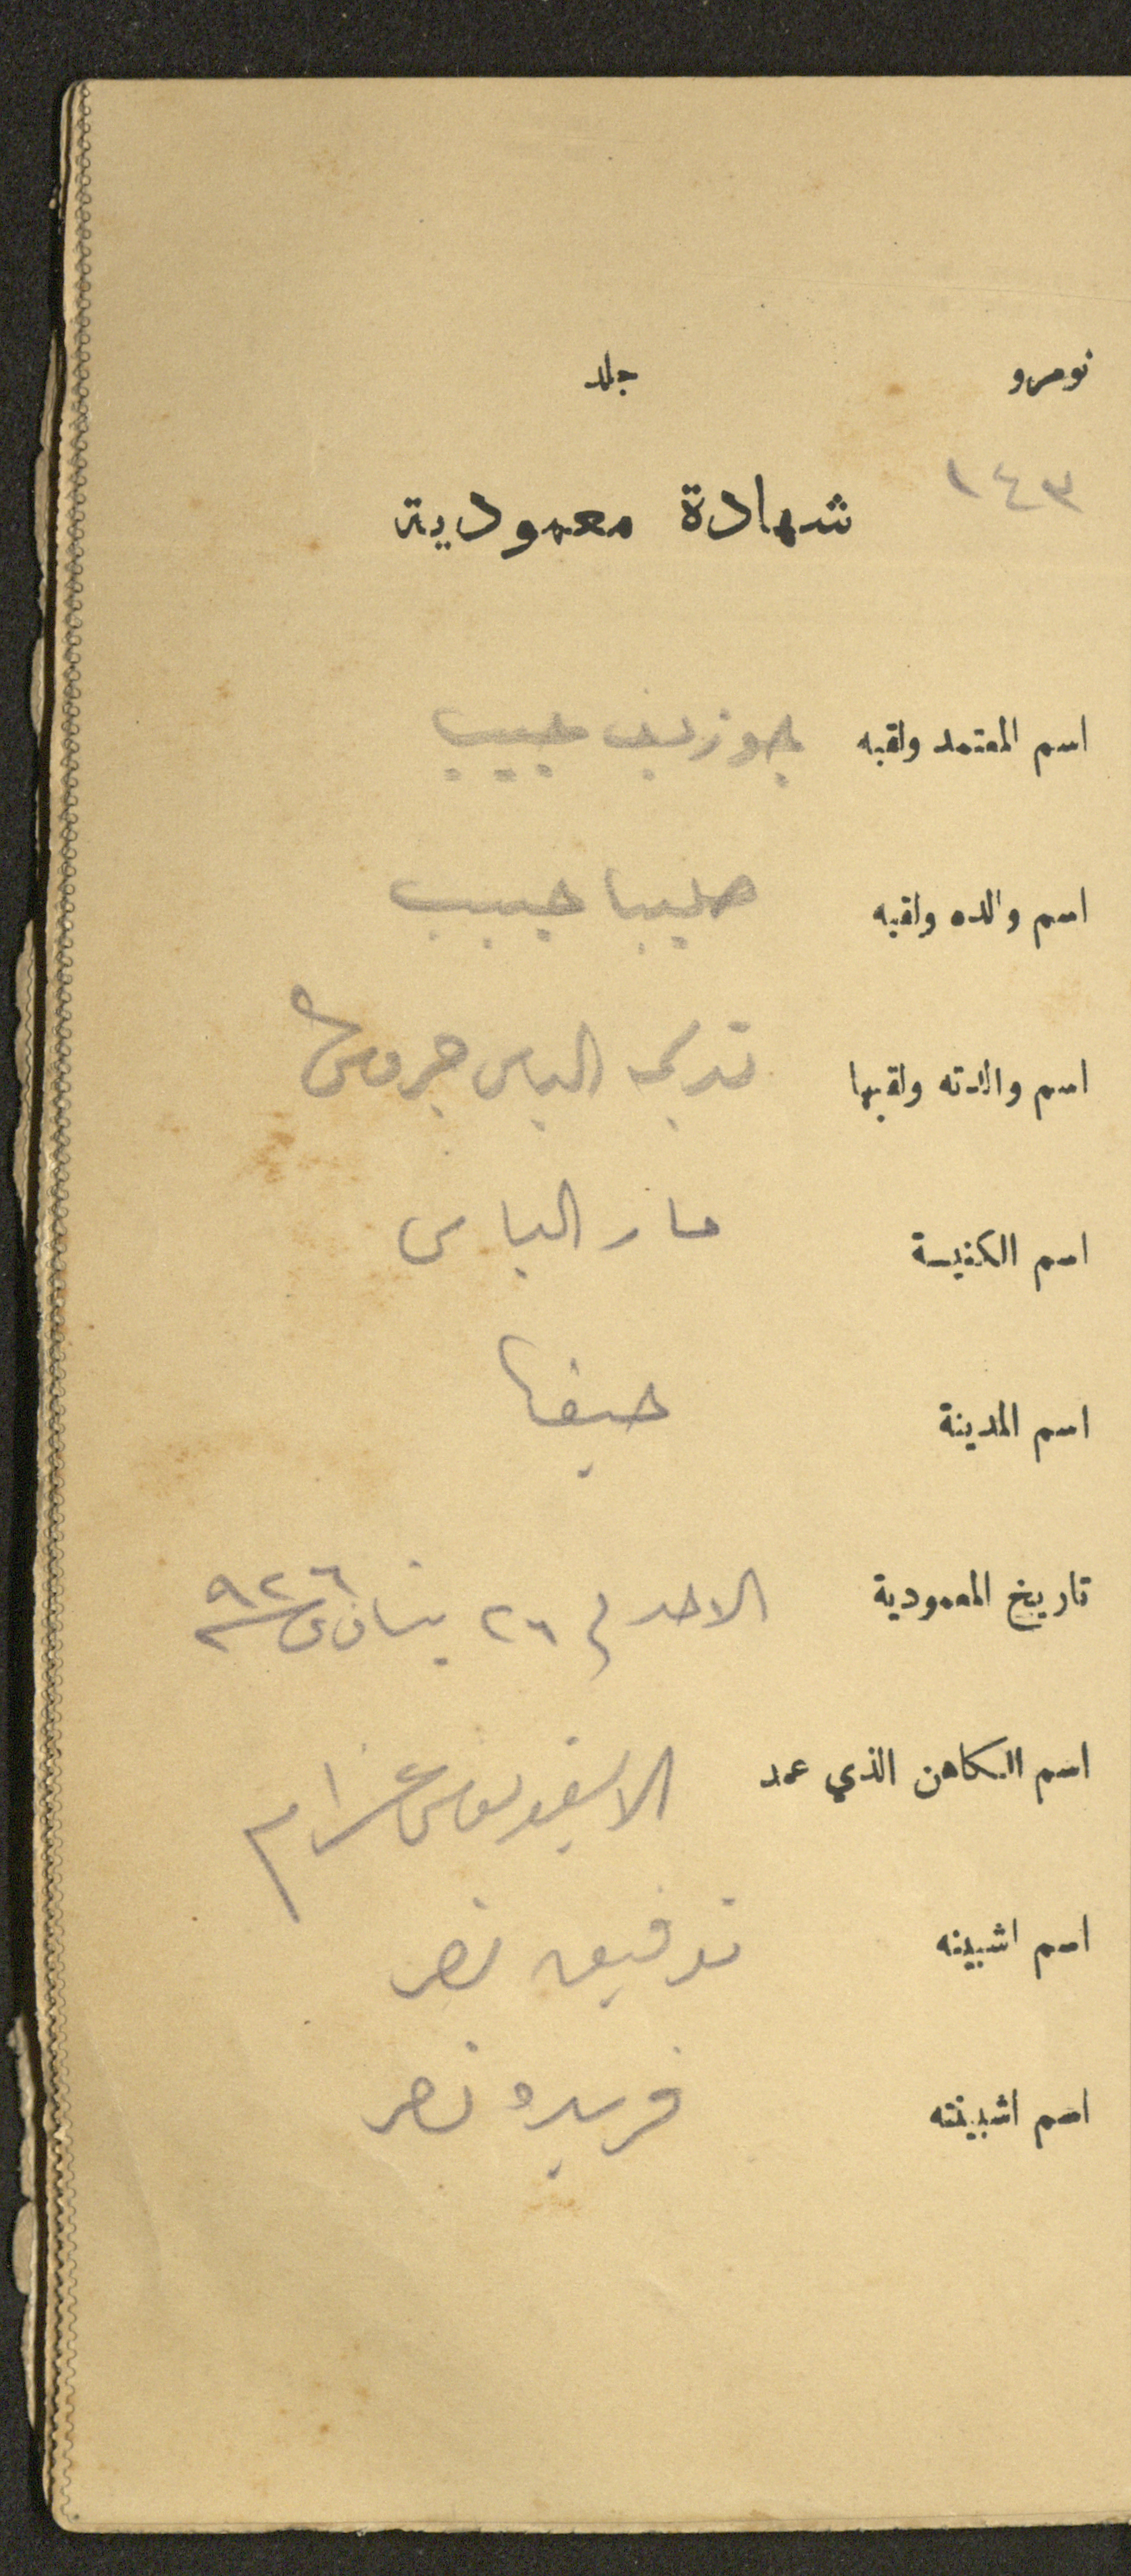 نومرو جلد
١٤٣
شهادة معمودية
اسم المعتمد ولقبه جوزيف حبيب
اسم والده ولقبه صليبا حبيب
اسم والدته ولقبها الياس
اسم الكنيسة مار الياس
اسم المدينة حيفا
تاريخ المعمودية الاحد في ٢٦ نيسان ٩٢٦
اسم الكاهن الذي عمد
اسم اشبينه توفيق نصر
اسم اشبينته فريده نصر